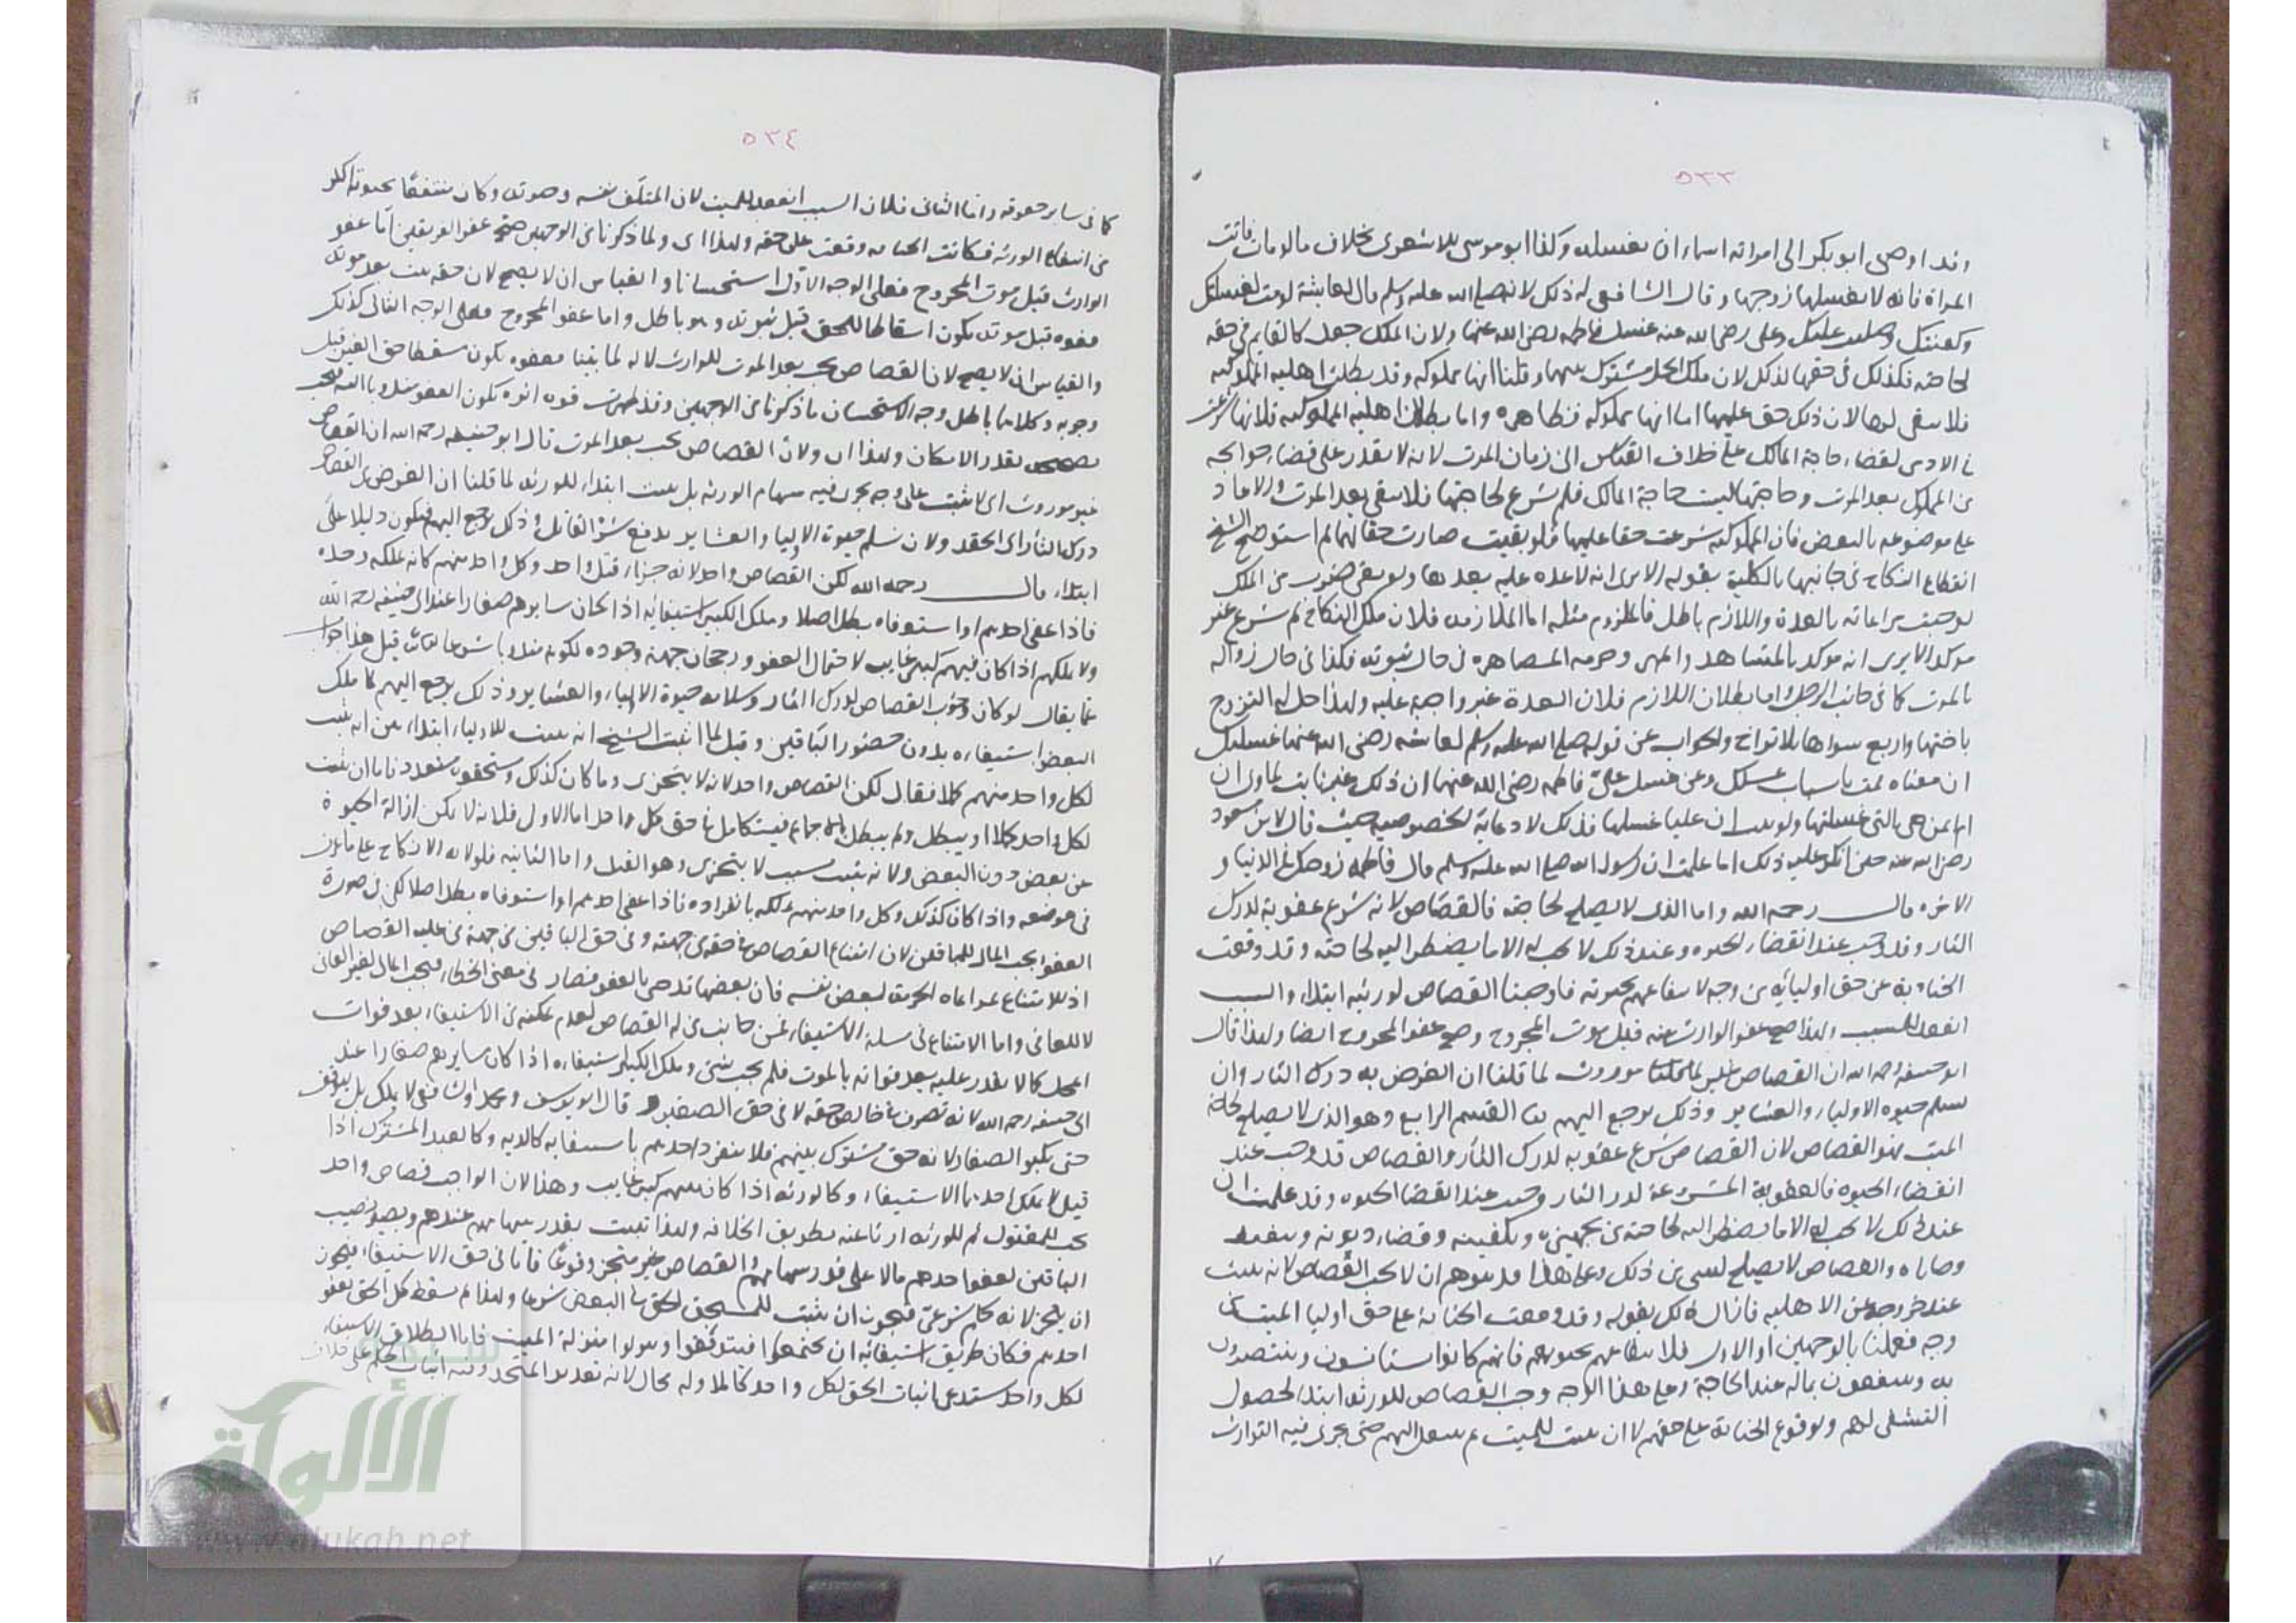 ٥٣٣
وقد اوصى ابو بكر الى امراته اسماء ان تغسله وكذا ابو موسى الاشعرى بخلاف ما لو ماتت
المراة فانه لا يغسلها زوجها وقال الشافعى له ذلك لانه صلى الله عليه وسلم قال لعايشة لو مت لغسلتك
وكفنتك وصليت عليك وعلى رضى الله عنه غسل فاطمه رضى الله عنها ولان الملك جعل كالقايم فى حقه
لحاجته فكذلك فى حقها لذلك لان ملك الحل مشترك بينهما وقلنا انها مملوكه وقد بطلت اهليه المملوكيه
فلا يبقى لها لان ذلك حق عليها اما انها مملوكه فظاهره واما بطلان اهليه المملوكيه فلانها
فى الادمى لقضاء حاجة المالك على خلاف القياس الى زمان الموت لانه لا يقدر على قضاء حوايجه
من المملوك بعد الموت وحاجتها ليست حاجة المالك فلم تشرع لحاجتها فلا تبقى بعد الموت والا عاد
على موضوعه بالنقض فان المملوكيه شرعت حقا عليها فلو بقيت صارت حقا لها ثم استوضح الشيخ
انقطاع النكاح فى جانبها بالكلية بقوله الا يرى انه لا عده عليه بعدها ولو بقى ضرب من الملك
لوجبت مراعاته بالعدة واللازم باطل فالملزوم مثله اما الملازمه فلان ملك النكاح لم يشرع غير
موكد الا يرى انه موكد بالمشاهد والمهر وحرمه المصاهره فى حال ثبوته فكذا فى حال زواله
بالموت كما فى جانب الرجل واما بطلان اللازم فلان العدة غير واجبة عليه ولهذا حل له التزوج
باختها واربع سواها بلا تراخ والجواب عن قوله صلى الله عليه وسلم لعايشه رضى الله عنها غسلتك
ان معناه قمت باسباب غسلك وعن غسل على فاطمه رضى الله عنهما ان ذلك غير ثابت لما روى ان
ام ايمن هى التى غسلتها ولو ثبت ان عليا غسلها فذلك لادعائه الخصوصيه حيث قال لابن مسعود
رضى الله عنه حين انكر عليه ذلك اما علمت ان رسول الله صلى الله عليه وسلم قال فاطمه زوجتك فى الدنيا و
الاخره قال رحمه الله واما الذى لا يصلح لحاجته فالقصاص لانه شرع عقوبة لدرك
الثار وقد وجب عند انقضاء الحيوه وعند ذلك لا يجب له الا ما يضطر اليه لحاجته وقد وقعت
الجناية عن حق اوليائه من وجه لانتفاعهم بحيوته فاوجبنا القصاص لورثته ابتداء والسبب
انعقد للميت ولهذا صح عفو الوارث عنه قبل موت المجروح وصح عفو المجروح ايضا ولهذا قال
ابو حنيفه رحمه الله ان القصاص غير موروث لما قلنا ان الغرض به درك الثار وان
تسلم حيوه الاولياء والعشاير وذلك يرجع اليهم هذا القسم الرابع وهو الذى لا يصلح لحاجة
الميت فهو القصاص لان القصاص شرع عقوبه لدرك الثار والقصاص قد وجب عند
انقضاء الحيوه فالعقوبة المشروعة لدرك الثار وجبت عند انقضاء الحيوه وقد علمت ان
عند ذلك لا يجب له الا ما يضطر اليه لحاجته من تجهيزه وتكفينه وقضاء ديونه وتنفيذ
وصاياه والقصاص لا يصلح لشى من ذلك وعلى هذا قد يتوهم ان لا يجب القصاص لانه يثبت
عند خروجه عن الاهليه فازال ذلك بقوله وقد وقعت الجناية على حق اوليا الميت من
وجه فعملنا بالوجهين اما الاول فلانتفاعهم بحيوتهم فانهم كانوا يستانسون وينتصرون
به وينتفعون بماله عند الحاجة وعلى هذا الوجه وجب القصاص للورثه ابتدا لحصول
التشفى لهم ولوقوع الجناية على حقهم لا ان يثبت للميت ثم ينتقل اليهم حتى يجرى فيه التوارث
٥٣٤
كما فى ساير حقوقه واما الثانى فلان السبب انعقد للميت لان المتلف نفسه وحيوته وكان منتفعا بحيوته اكثر
من انتفاع الورثه فكانت الجنايه وقعت على حقه ولهذا اى ولما ذكرنا من الوجهين صح عفو الفريقين اما عفو
الوارث قبل موت المجروح فعلى الوجه الاول استحسانا والقياس ان لا يصح لان حقه يثبت بعد موته
فعفوه قبل موته يكون اسقاطا للحق قبل ثبوته وهو باطل واما عفو المجروح فعلى الوجه الثانى كذلك
والقياس ان لا يصح لان القصاص يجب بعد الموت للوارث لا له لما بينا فعفوه يكون مسقطا حق الغير قبل
وجوبه وكلاهما باطل وجه الاستحسان ما ذكرنا من الوجهين وقد ظهرت قوه اثره بكون العفو مندوبا اليه فيجب
تصحيحه بقدر الامكان ولهذا اى ولان القصاص يجب بعد الموت قال ابو حنيفه رحمه الله ان القصاص
غير موروث اى لا يثبت على وجه يجرى فيه سهام الورثه بل يثبت ابتداء للورثه لما قلنا ان الغرض من القصاص
درك الثار اى الحقد ولان تسلم حيوة الاوليا والعشاير بدفع شر القاتل وذلك يرجع اليهم فيكون دليلا على
ابتداء قال رحمه الله لكن القصاص واحد لانه جزاء قتل واحد وكل واحد منهم كانه يملكه وحده
فاذا عفى احدهم او استوفاه بطل اصلا وملك الكبير استيفائه اذا كان سايرهم صغارا عند ابى حنيفه رحمه الله
ولا يملكهم اذا كان فيهم كبير غايب لاحتمال العفو ورجحان جهة وجوده لكونه مندوبا شرعا قيل هذا جواب
عما يقال لو كان وجوب القصاص لدرك الثار وسلامه حيوة الاولياء والعشاير وذلك يرجع اليهم لما ملك
البعض استيفاءه بدون حضور الباقين وقيل لما اثبت الشيخ انه يثبت للاولياء ابتداء
لكل واحد منهم كملا فقال لكن القصاص واحد لانه لا يتجزى وما كان كذلك
لكل واحد كملا او يبطل ولم يبطل بالاجماع فيتكامل فى حق كل واحد اما الاول فلانه لا يمكن ازالة الحيوة
عن بعض دون البعض ولانه يثبت بسبب لا يتجزى وهو القتل واما الثانيه فلولايه الانكاح على ما
فى موضعه واذا كان كذلك وكل واحد منهم يملكه بانفراده فاذا عفى احدهم او استوفاه بطل اصلا لكن فى صورة
العفو يجب المال للباقين لان امتناع القصاص فى حقه من جهته وفى حق الباقين من جهة من عليه القصاص
اذ الامتناع لمراعاه الحرمة لبعض نفسه فان بعضها قد حى بالعفو فصار فى معنى الخطاء فيجب المال لغير العافى
لا للعافى واما الامتناع فى مسلة الاستيفاء فمن جانب من له القصاص لعدم تمكنه من الاستيفاء بعد فوات
المحل كما لا يقدر عليه بعد فواته بالموت فلم يجب شئ وملك الكبير استيفاءه اذا كان سايرهم صغارا عند
ابى حنيفه رحمه الله لانه تصرف فى خالص حقه لا فى حق الصغير وقال ابو يوسف ومحمد والشافعى لا يملك بل يتوقف
حتى يكبر الصغار لانه حق مشترك بينهم فلا ينفرد احدهم باستيفائه كالديه وكالعبد المشترك اذا
قتل لا يملك احدهما الاستيفاء وكالورثه اذا كان بينهم كبير غايب وهذا لان الواجب قصاص واحد
يجب للمقتول ثم للورثه ارثا عنه بطريق الخلافه ولهذا تثبت بقدر سهامهم عندهم ويصير نصيب
الباقين بعفو احدهم مالا على قدر سهامهم والقصاص غير متجز وقوعا فاما فى حق الاستيفاء فيجوز
ان يتجزا لانه حكم شرعى فيجوز ان يثبت الحق فى البعض شرعا ولهذا لم يسقط كل الحق بعفو
احدهم فكان طريق استيفائه ان يجتمعوا فيتوقفوا وينزلوا منزلة الميت فاما اطلاق الاستيفاء
لكل واحد يستدعى اثبات الحق لكل واحد كاملا وله محال لانه تعديد المتحد وفيه اثبات الحكم على خلاف
شبكة
الألوكة
www.alukah.net